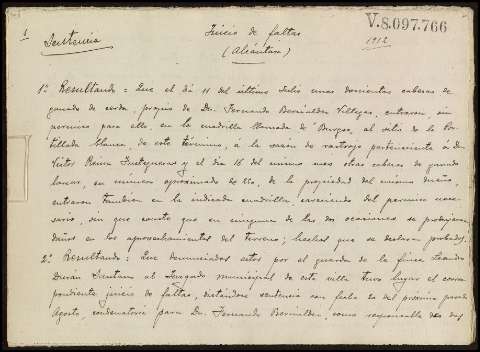 1
Juicio de faltas
V.8.097.766
Sentencia
(Alcántara)
1912
1º Resultando: Que el dia 11 del último Julio unas doscientas cabezas de
ganado de cerda, propias de Dn. Fernando Bernáldez Villegas, entraron, sin
permiso para ello, en la cuadrilla llamada de Burgos, al sitio de la
blanca, de este término, á la sazón de rastrojo perteneciente á Dn.
y el dia 16 del mismo mes otras cabezas de ganado
lanar, en número aproximado de, de la propiedad del mismo dueño,
entraron tambien en la indicada cuadrilla, careciendo del permiso nece-
sario, sin que conste que en ninguna de las dos ocasiones se produjeran
daños en los aprovechamientos del terreno; hechos que se declaran probados.
2º Resultando: Que denunciados estos por el guarda de la finca Leandro
Durán al Juzgado municipal de esta villa tuvo lugar el corres-
pondiente juicio de faltas, dictándose sentencia con fecha 20 del próximo pasado
Agosto, condenatoria para Dn. Fernando Bernáldez, como responsable de dos